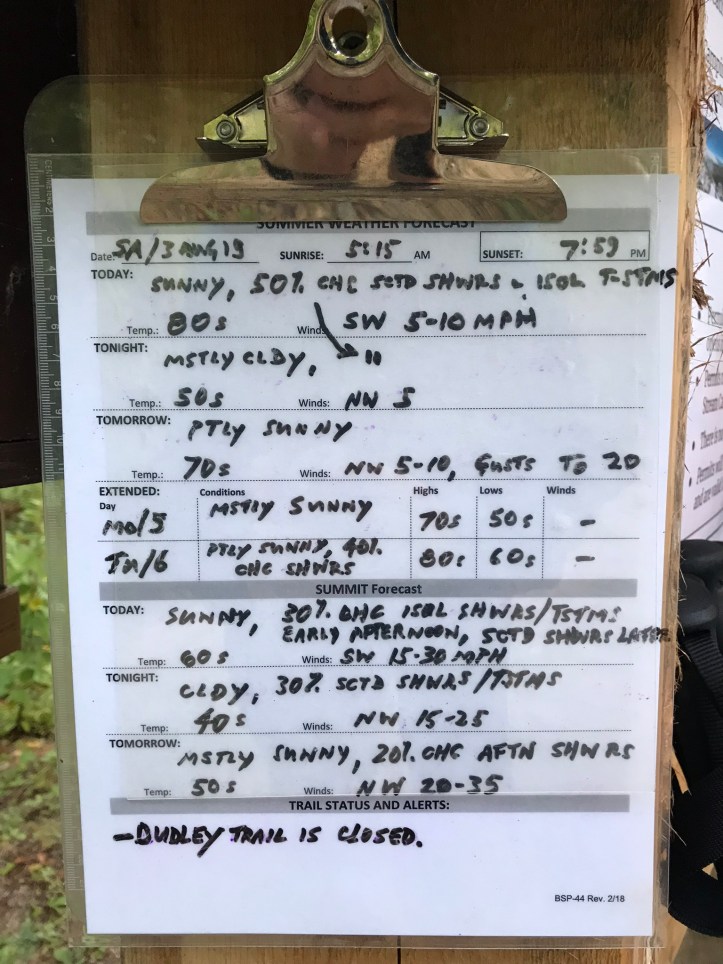 SUMMER WEATHER FORECAST
Date: SA/3 AUG 19 SUNRISE: 5:15 AM SUNSET: 7:59 PM
TODAY: SUNNY, 50% CHC SCTD SHWRS & ISOL T-STMS
Temp.: 80s Winds SW 5-10 MPH
TONIGHT: MSTLY CLDY, "
Temp.: 50s Winds: NW 5
TOMORROW: PTLY SUNNY
Temp.: 70s Winds: NW 5-10, GUSTS TO 20
EXTENDED: Conditions Highs Lows Winds
Day
MO/5 MSTLY SUNNY 70s 50s -
TU/6 PTLY SUNNY, 40%
CHC SHWRS 80s 60s -
SUMMIT Forecast
TODAY: SUNNY, 30% CHC ISOL SHWRS/TSTMS
EARLY AFTERNOON, SCTD SHWRS LATER
Temp: 60s Winds: SW 15-30 MPH
TONIGHT: CLDY, 30% SCTD SHWRS/TSTMS
Temp: 40s Winds: NW 15-25
TOMORROW: MSTLY SUNNY, 20% CHC AFTN SHWRS
Temp: 50s Winds: NW 20-35
TRAIL STATUS AND ALERTS:
-DUDLEY TRAIL IS CLOSED.
BSP-44 Rev. 2/18